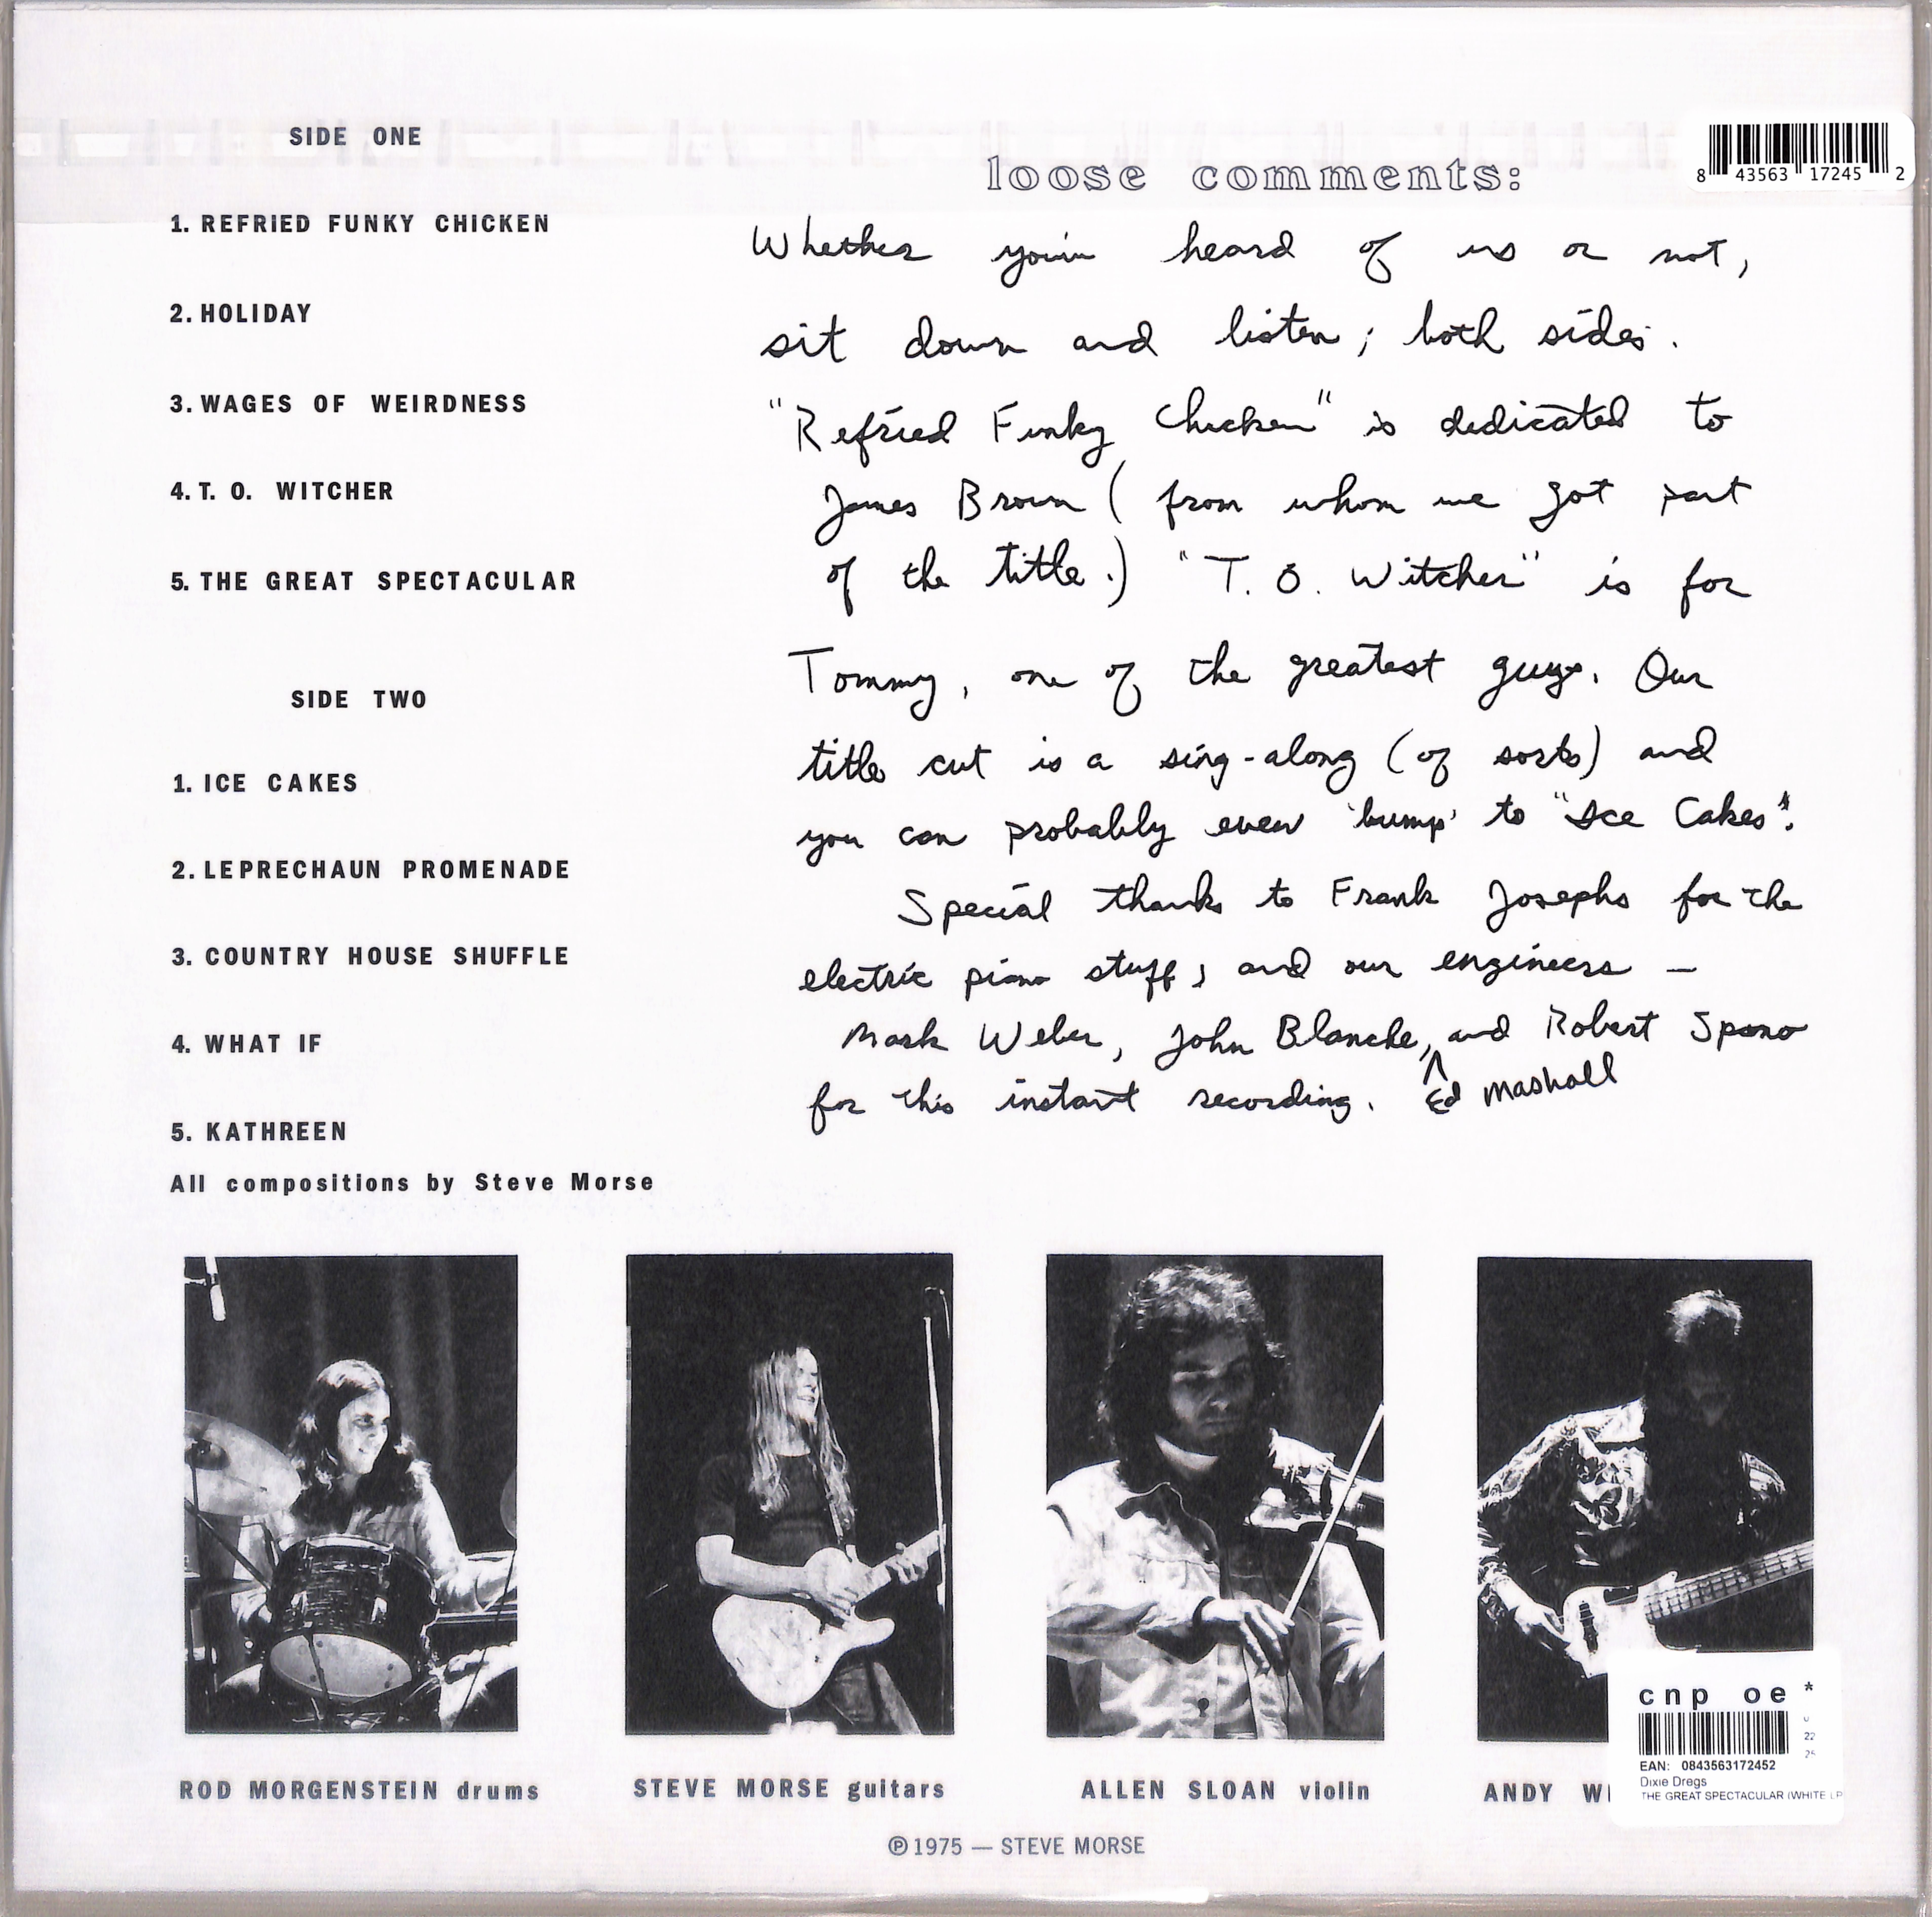 SIDE ONE
1. REFRIED FUNKY CHICKEN
2. HOLIDAY
3. WAGES OF WEIRDNESS
4. T. O. WITCHER
5. THE GREAT SPECTACULAR
SIDE TWO
1. ICE CAKES
2. LEPRECHAUN PROMENADE
3. COUNTRY HOUSE SHUFFLE
4. WHAT IF
5. KATHREEN
All compositions by Steve Morse
loose comments:
8 43563 17245 2
Whether you've heard of us or not,
sit down and listen; both sides.
"Refried Funky Chicken" is dedicated to
James Brown (from whom we got part
of the title.) "T. O. Witcher" is for
Tommy, one of the greatest guys. Our
title cut is a sing-along (of sorts) and
you can probably even 'bump' to "Ice Cakes".
Special thanks to Frank Josephs for the
electric piano stuff, and our engineers —
Mark Weber, John Blanche, and Robert Spano
for this instant recording. Ed Mashall
ROD MORGENSTEIN drums
STEVE MORSE guitars
ALLEN SLOAN violin
ANDY
cnp oe *
22
EAN: 0843563172452
Dixie Dregs
THE GREAT SPECTACULAR (WHITE LP
℗ 1975 — STEVE MORSE